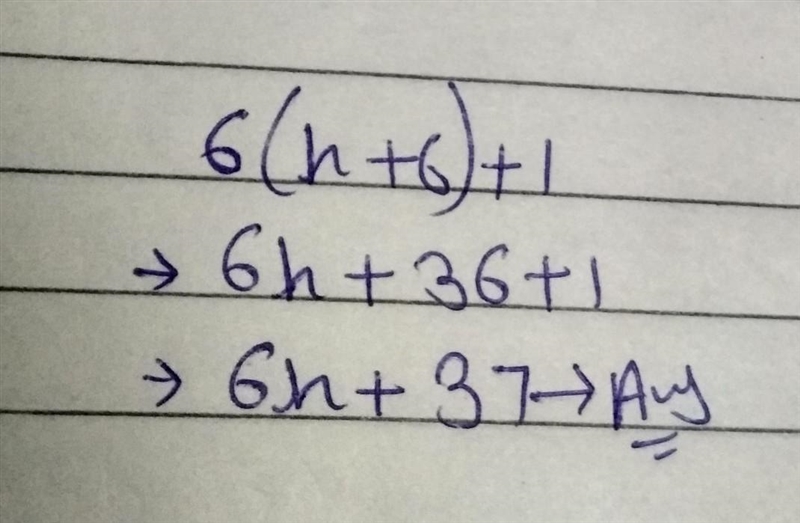 6(h+6)+1
→ 6h + 36 + 1
→ 6h + 37 → Ans